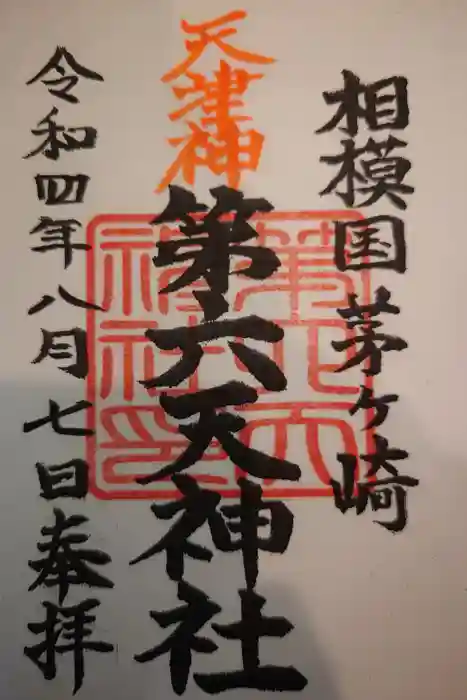 相模国茅ヶ崎
天津神
第六天神社
令和四年八月七日奉拝
第六天
神社印